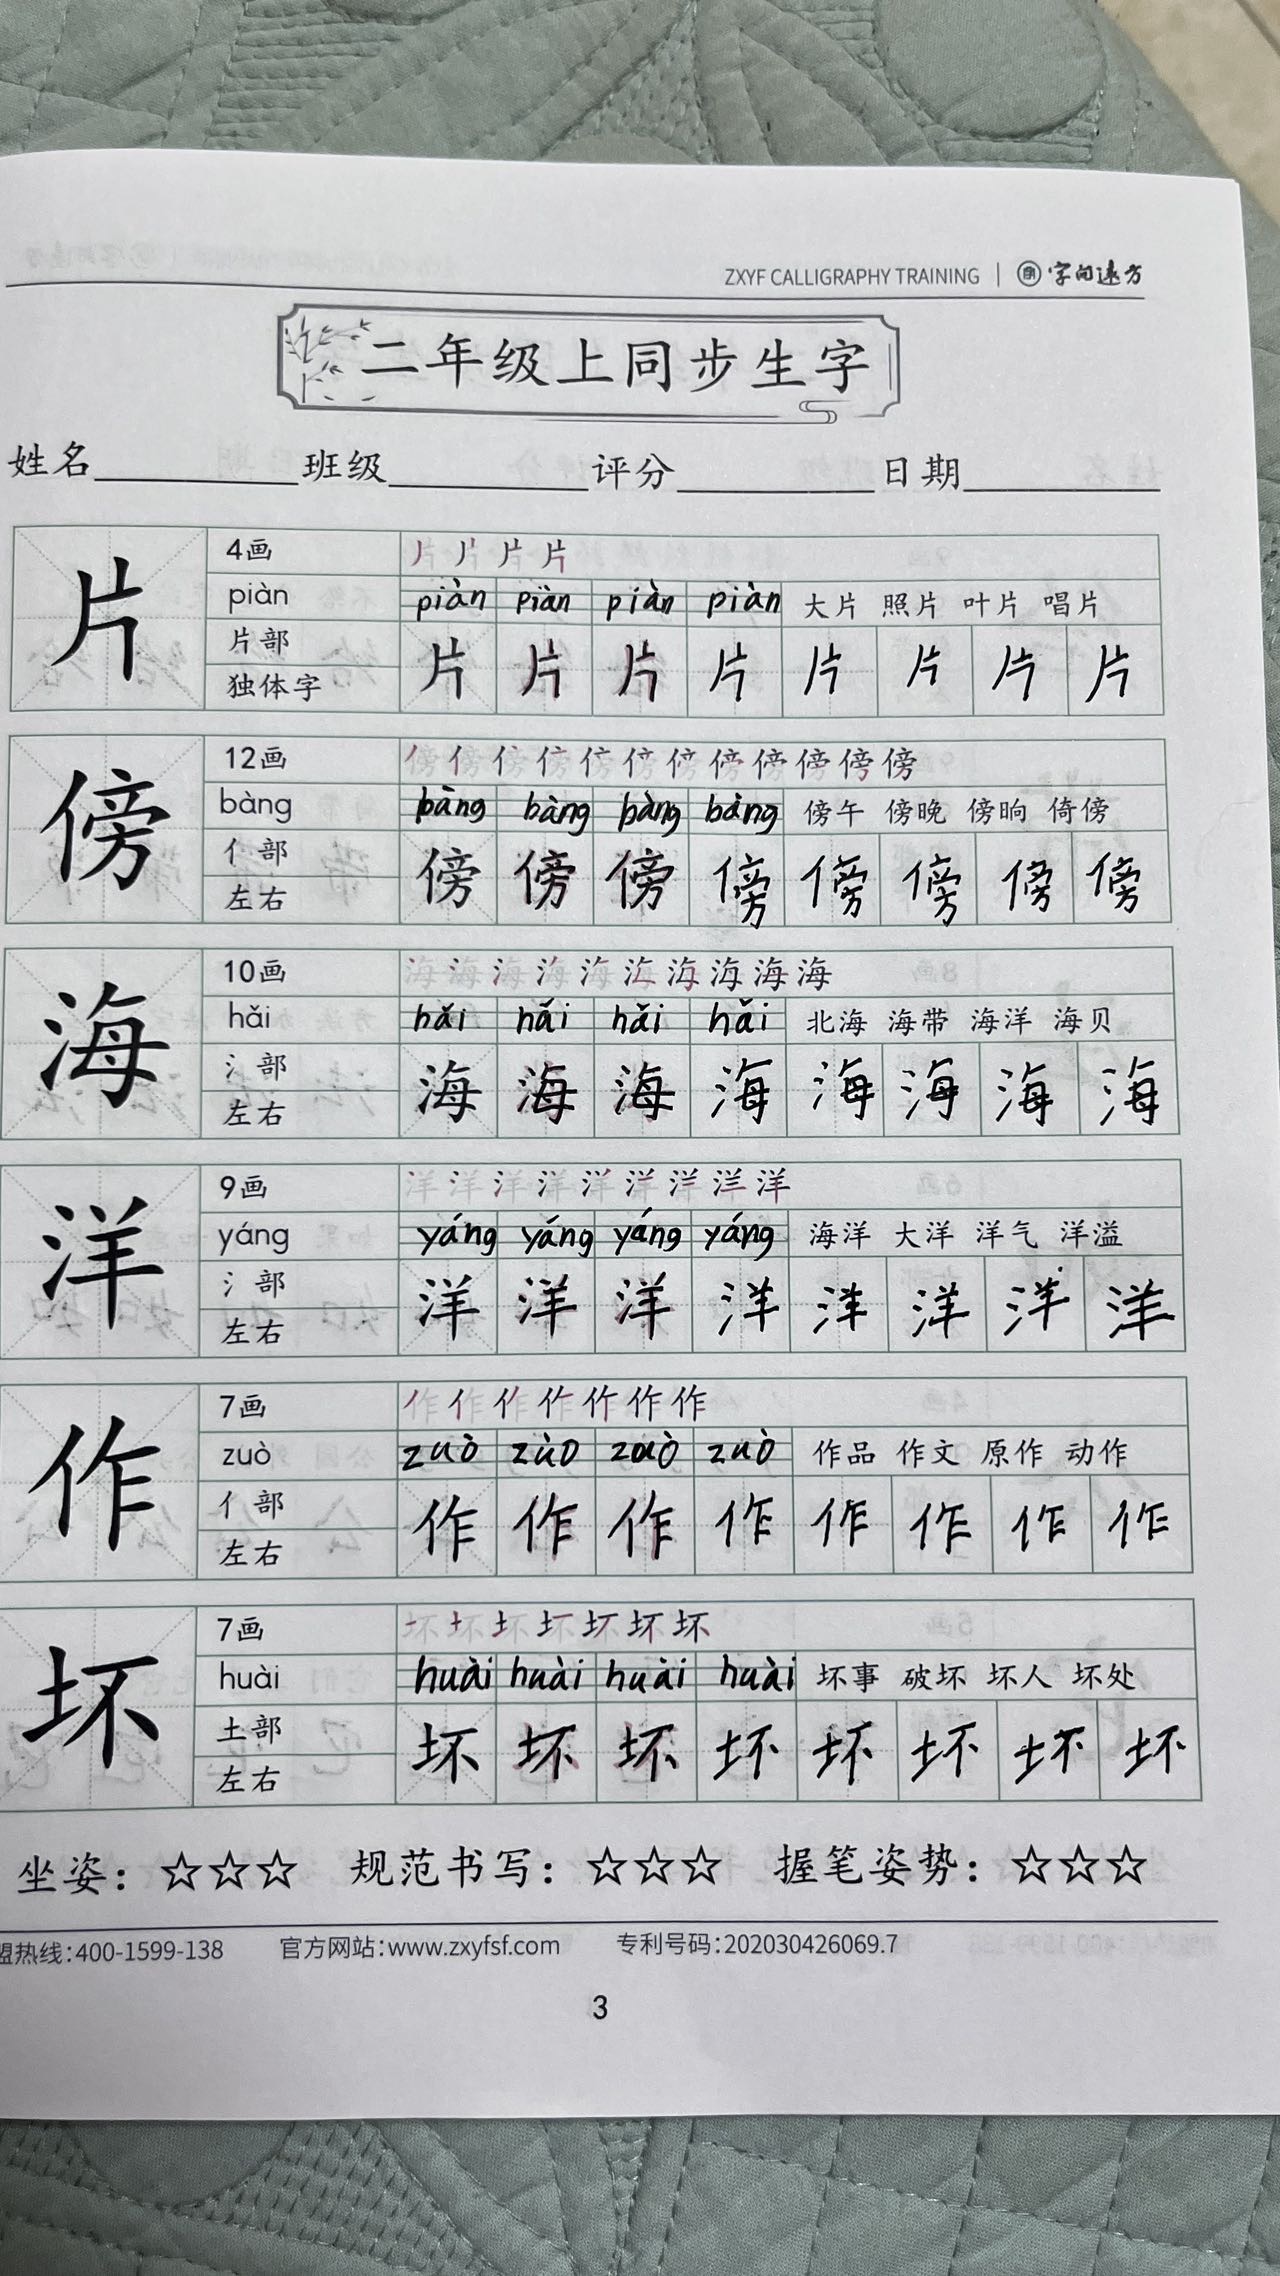 ZXYF CALLIGRAPHY TRAINING | 字向远方
二年级上同步生字
姓名 班级 评分 日期
片
4画 片 片 片 片
piàn piàn piàn piàn piàn 大片 照片 叶片 唱片
片部
独体字
片 片 片 片 片 片 片 片
傍
12画 傍 傍 傍 傍 傍 傍 傍 傍 傍 傍 傍 傍
bàng bàng bàng bàng bàng 傍午 傍晚 傍晌 倚傍
亻部
左右
傍 傍 傍 傍 傍 傍 傍 傍
海
10画 海 海 海 海 海 海 海 海 海 海
hǎi hǎi hǎi hǎi hǎi 北海 海带 海洋 海贝
氵部
左右
海 海 海 海 海 海 海 海
洋
9画 洋 洋 洋 洋 洋 洋 洋 洋 洋
yáng yáng yáng yáng yáng 海洋 大洋 洋气 洋溢
氵部
左右
洋 洋 洋 洋 洋 洋 洋 洋
作
7画 作 作 作 作 作 作 作
zuò zuò zùo zuò zuò 作品 作文 原作 动作
亻部
左右
作 作 作 作 作 作 作 作
坏
7画 坏 坏 坏 坏 坏 坏 坏
huài huài huài huài huài 坏事 破坏 坏人 坏处
土部
左右
坏 坏 坏 坏 坏 坏 坏 坏
坐姿：☆☆☆ 规范书写：☆☆☆ 握笔姿势：☆☆☆
盟热线：400-1599-138 官方网站：www.zxyfsf.com 专利号码：202030426069.7
3